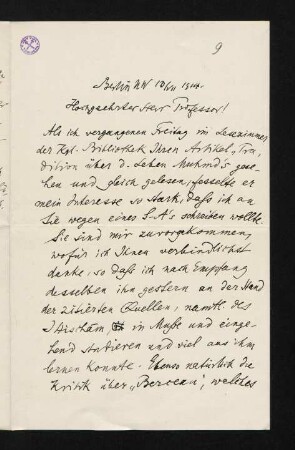 9
Berlin NW 10/VII 1914.
Hochgeehrter Herr Professor!
Als ich vergangenen Freitag im Lesezimmer
der Kgl. Bibliothek Ihren Artikel „Tra-
dition über d. Leben Muhmd's gese-
hen und gleich gelesen, fesselte er
mein Interesse so stark, daß ich an
Sie wegen eines S.A's schreiben wollte.
Sie sind mir zuvorgekommen,
wofür ich Ihnen verbindlichst
danke, so daß ich nach Empfang
desselben ihn gestern an der Hand
der zitierten Quellen, namtl. des
I Hischâm, in Muße und einge-
hend studieren und viel aus ihm
lernen konnte. Ebenso natürlich die
Kritik über „Berceau", welches